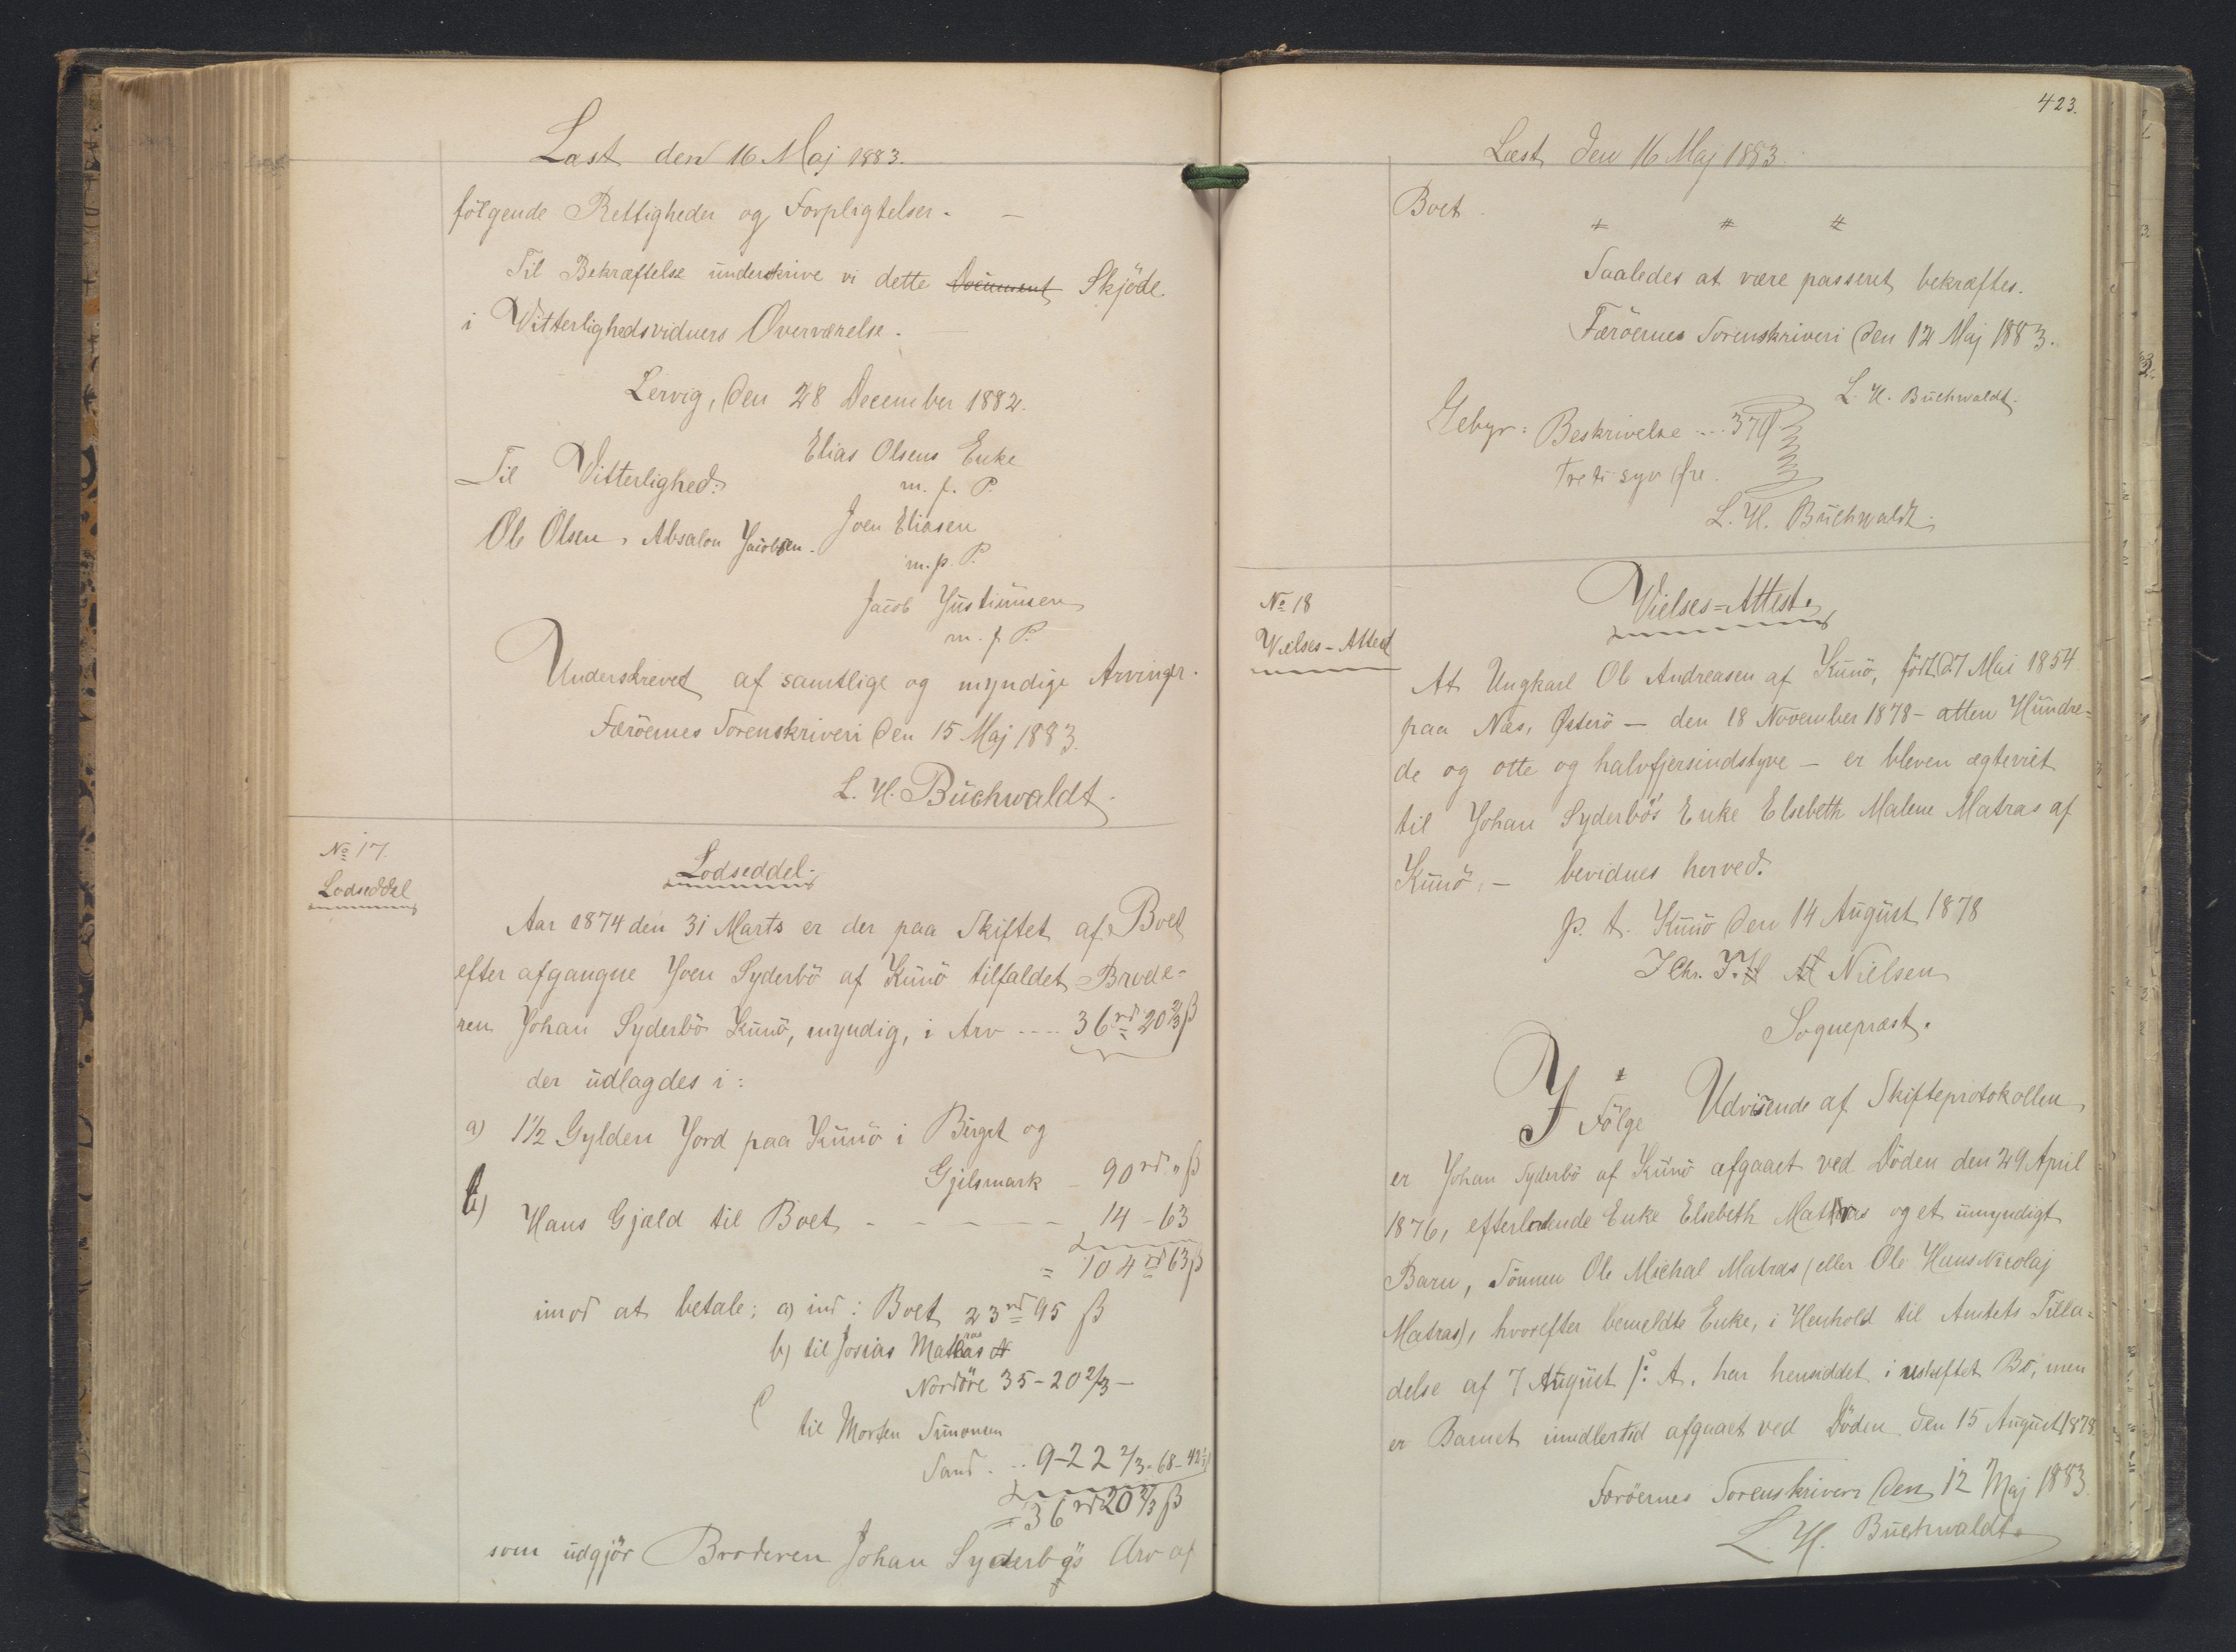 Læst den 16 Maj 1883.
følgende Rettigheder og Forpligtelser. —
Til Bekræftelse underskrive vi dette Document Skjöde
i Vitterlighedsvidners Overværelse. —
Lervig, den 28 December 1882.
Elias Olsens Enke
Til Vitterlighed:
m. f. P.
Joen Eliasen
Ole Olsen, Absalon Jacobsen.
m. p. P.
Jacob Justinusen
m. f. P.
Underskrevet af samtlige og myndige Arvinger.
Færöernes Sorenskriveri den 15 Maj 1883.
L. H. Buchwaldt.
No 17.
Lodseddel
Lodseddel.
Aar 1874 den 31 Marts er der paa Skiftet af Boet
efter afgangne Joen Syderbö af Kunö tilfaldet Brode-
ren Johan Syderbö Kunö, myndig, i Arv .... 36 rd 20 2/3 ß
der udlagdes i:
a) 1 1/2 Gylden Jord paa Kunö i Birgit og
Gjilsmark – 90 rd. „ ß
b) Hans Gjæld til Boet – – – – – 14 – 63
= 104 rd 63 ß
imod at betale: a) ind i Boet 23 rd 95 ß
b) til Josias Matras
Nordöre 35 – 20 2/3 —
til Morten Simonsen
Sand. .. 9 – 22 2/3 – 68 – 42 1/3
= 36 rd 20 2/3 ß
som udgjör Broderen Johan Syderbö's Arv af
423.
Læst den 16 Maj 1883.
Boet.
Saaledes at være passeret bekræftes.
Færöernes Sorenskriveri den 12 Maj 1883.
L. H. Buchwaldt.
Gebyr: Beskrivelse .... 37 Ø
Treti syv Øre.
L. H. Buchwaldt.
No 18
Vielses-Attest
Vielses-Attest.
At Ungkarl Ole Andreasen af Kunö, födt d. 7 Mai 1854
paa Næs, Østerö — den 18 November 1878 – atten Hundre-
de og otte og halvfjersindstyve — er bleven ægteviet
til Johan Syderbö's Enke Elsebeth Malene Matras af
Kunö, – bevidnes herved.
p. t. Kunö den 14 August 1878
J Chr. Nielsen
Sognepræst.
I Fölge Udvisende af Skifteprotokollen
er Johan Syderbö af Kunö afgaaet ved Döden den 29 April
1876, efterladende Enke Elsebeth Matras og et umyndigt
Barn, Sönnen Ole Michal Matras (eller Ole Hans Nicolaj
Matras), hvorefter bemeldte Enke, i Henhold til Amtets Tilla-
delse af 7 August s. A. har hensiddet i uskiftet Bo, men
er Barnet imidlertid afgaaet ved Döden den 15 August 1878.
Færöernes Sorenskriveri den 12 Maj 1883.
L. H. Buchwaldt.